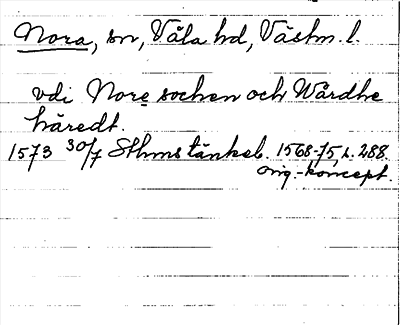 Nora, sn, Våla hd, Västm. l.
vdi Nore sochen och Wårdhe
häredt.
1573 30/7 Sthms tänkeb. 1568-75, s. 288.
orig.-koncept.